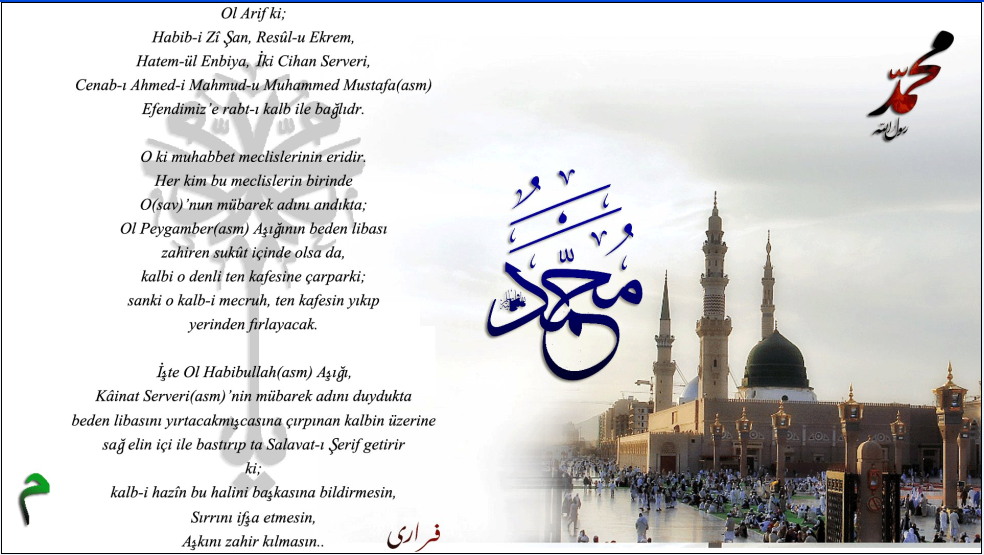 Ol Arif ki;
Habib-i Zî Şan, Resûl-u Ekrem,
Hatem-ül Enbiya, İki Cihan Serveri,
Cenab-ı Ahmed-i Mahmud-u Muhammed Mustafa(asm)
Efendimiz'e rabt-ı kalb ile bağlıdr.
O ki muhabbet meclislerinin eridir.
Her kim bu meclislerin birinde
O(sav)'nun mübarek adını andıkta;
Ol Peygamber(asm) Aşığının beden libası
zahiren sukût içinde olsa da,
kalbi o denli ten kafesine çarparki;
sanki o kalb-i mecruh, ten kafesin yıkıp
yerinden fırlayacak.
İşte Ol Habibullah(asm) Aşığı,
Kâinat Serveri(asm)'nin mübarek adını duydukta
beden libasını yırtacakmışcasına çırpınan kalbin üzerine
sağ elin içi ile bastırıp ta Salavat-ı Şerif getirir
ki;
kalb-i hazîn bu halini başkasına bildirmesin,
Sırrını ifşa etmesin,
Aşkını zahir kılmasın..
فراری
م
محمد
محمد
رسول الله